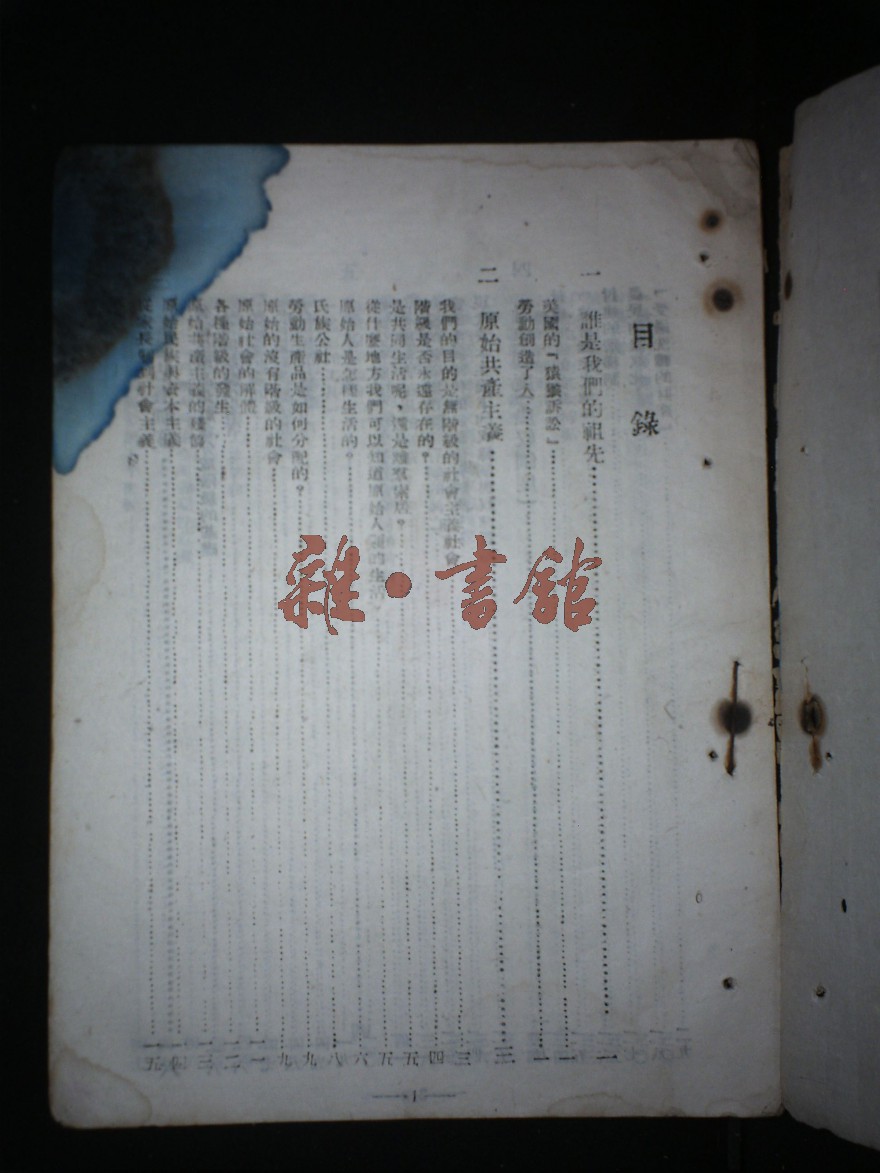 目錄
一 誰是我們的祖先……一
美國的「猿猴訴訟」……一
勞動創造了人……二
二 原始共產主義……三
我們的目的是無階級的社會主義社會……三
階級是否永遠存在的?……四
是共同生活呢,還是離羣索居?……五
從什麼地方我們可以知道原始人的生活……五
原始人是怎樣生活的?……六
氏族公社……八
勞動生產品是如何分配的?……九
原始的沒有階級的社會……九
原始社會的解體……一一
各種階級的發生……一二
原始共產主義的殘餘……一三
原始民族與資本主義……一四
長制到社會主義……一五
—1—
雜·書館